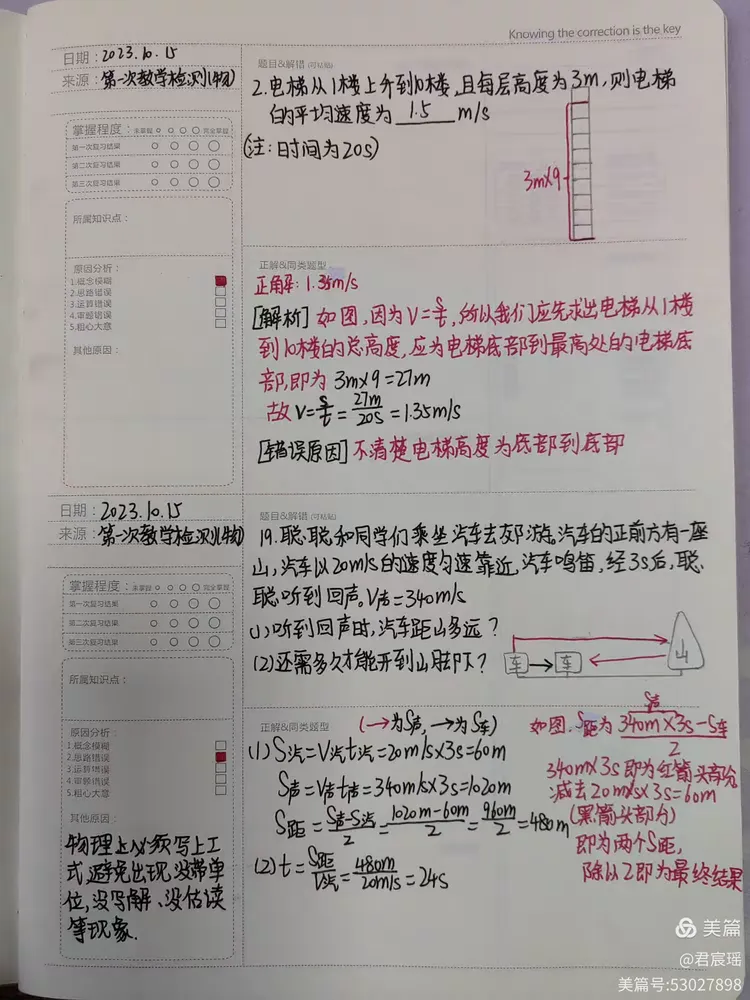 Knowing the correction is the key
日期：2023.10.15
来源：第一次教学检测(物)
掌握程度：未掌握 完全掌握
第一次复习结果
第二次复习结果
第三次复习结果
所属知识点：
原因分析：
1.概念模糊
2.思路错误
3.运算错误
4.审题错误
5.粗心大意
其他原因：
题目&解错(可粘贴)
2.电梯从1楼上升到10楼，且每层高度为3m，则电梯
的平均速度为 1.5 m/s
(注：时间为20s)
3m×9
正解&同类题型
正确解：1.35m/s
[解析] 如图，因为V=s/t，所以我们应先求出电梯从1楼
到10楼的总高度，应为电梯底部到最高处的电梯底
部，即为 3m×9=27m
故 V=s/t=27m/20s=1.35m/s
[错误原因] 不清楚电梯高度为底部到底部
日期：2023.10.15
来源：第一次教学检测(物)
掌握程度：未掌握 完全掌握
第一次复习结果
第二次复习结果
第三次复习结果
所属知识点：
原因分析：
1.概念模糊
2.思路错误
3.运算错误
4.审题错误
5.粗心大意
其他原因：
物理上必须写上工
式，避免出现没带单
位，没写解、没估读
等现象.
题目&解错(可粘贴)
19.聪聪和同学们乘坐汽车去郊游。汽车的正前方有一座
山，汽车以20m/s的速度匀速靠近，汽车鸣笛，经3s后，聪
聪听到回声。V声=340m/s
(1)听到回声时，汽车距山多远？
(2)还需多久才能开到山脚下？
车→车
山
正解&同类题型
(→为S声，→为S车)
(1) S汽=V汽t汽=20m/s×3s=60m
S声=V声t声=340m/s×3s=1020m
S距=S声-S汽/2=1020m-60m/2=960m/2=480m
(2) t=S距/V汽=480m/20m/s=24s
S声
如图，S距为 340m×3s-S车/2
340m×3s即为红箭头部分
减去20m/s×3s=60m
(黑箭头部分)
即为两个S距，
除以2即为最终结果
美篇
@君宸瑶
美篇号:53027898